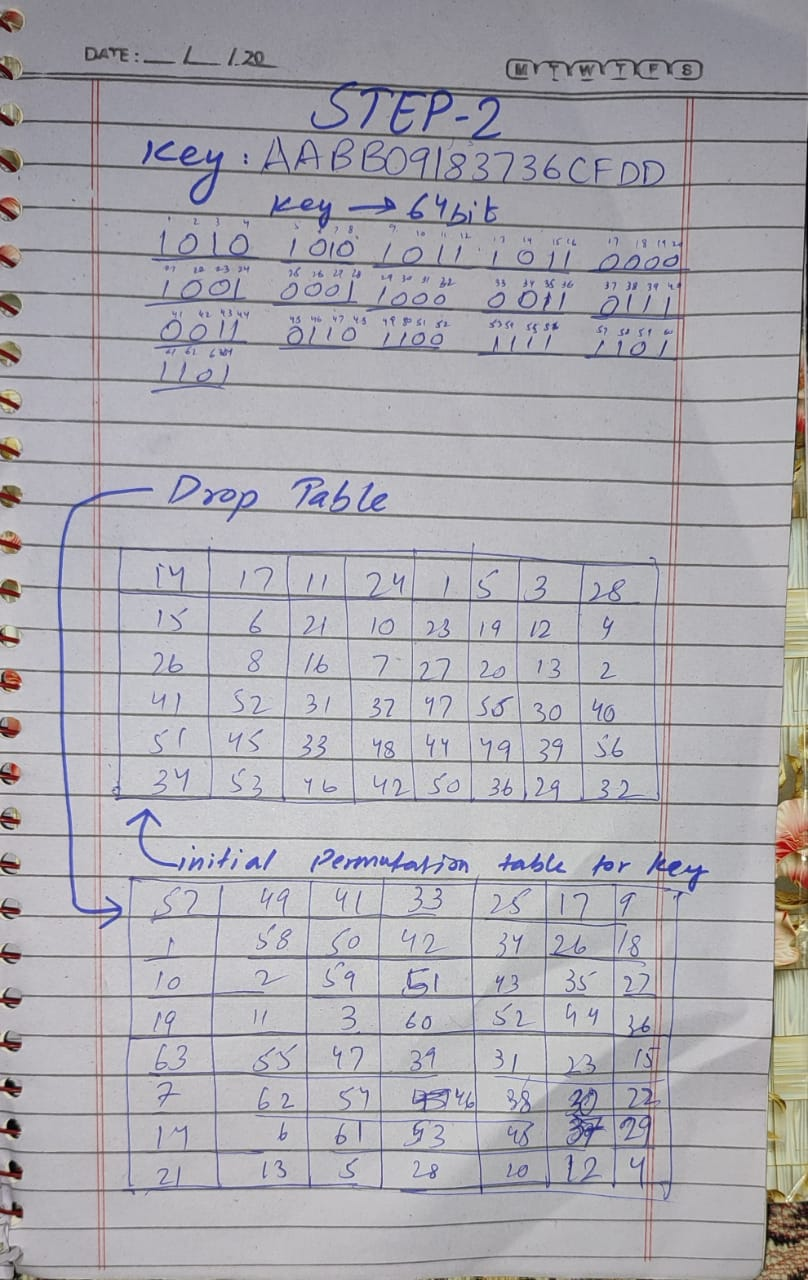 DATE: __/__/20__
M T W T F S
STEP-2
Key : AABB09183736CFDD
Key → 64bit
1 2 3 4 5 6 7 8 9 10 11 12 13 14 15 16 17 18 19 20
1010 1010 1011 1011 0000
21 22 23 24 25 26 27 28 29 30 31 32 33 34 35 36 37 38 39 40
1001 0001 1000 0011 0111
41 42 43 44 45 46 47 48 49 50 51 52 53 54 55 56 57 58 59 60
0011 0110 1100 1111 1101
61 62 63 64
1101
Drop Table
14 17 11 24 1 5 3 28
15 6 21 10 23 19 12 4
26 8 16 7 27 20 13 2
41 52 31 37 47 55 30 40
51 45 33 48 44 49 39 56
34 53 46 42 50 36 29 32
initial Permutation table for key
57 49 41 33 25 17 9
1 58 50 42 34 26 18
10 2 59 51 43 35 27
19 11 3 60 52 44 36
63 55 47 39 31 23 15
7 62 54 46 38 30 22
14 6 61 53 45 37 29
21 13 5 28 20 12 4